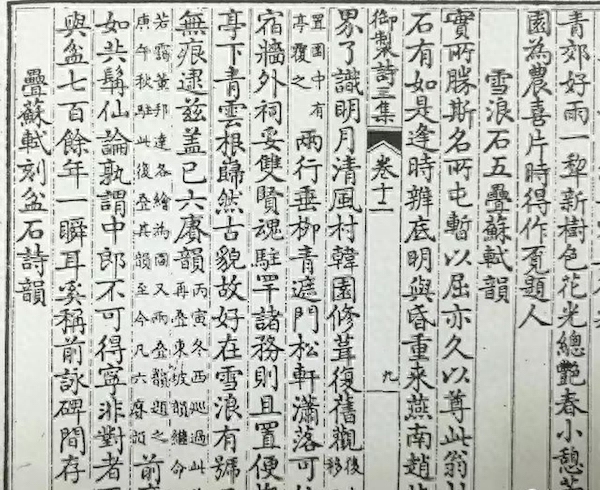 青郊好雨一犂新樹色花光總艷春小憩
園為農喜片時得作覔題人
雪浪石五疊蘇軾韻
實所勝斯名所屯暫以屈亦久以尊此翁
石有如是逢時辨底明與昏重来燕南趙
御製詩三集 卷十二 九
累了識明月清風村韓園修葺復舊觀後移
置園中有亭覆之兩行垂柳青遮門松軒瀟落可
宿牆外祠妥雙賢魂駐罕諸務則且置便
亭下青雲根巋然古貌故好在雪浪有號
無痕逮茲蓋已六賡韻丙寅冬西巡過此再叠東坡韻繼命
若靄董邦達各繪為圖又兩叠韻題之庚午秋駐此復叠其韻至今凡六賡韻前
如共髯仙論孰謂中郎不可得寧非對者
與盆七百餘年一瞬耳奚稱前詠碑間存
疊蘇軾刻盆石詩韻